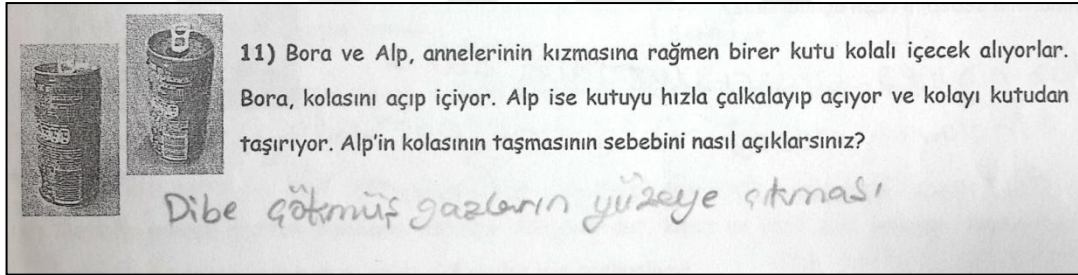 11) Bora ve Alp, annelerinin kızmasına rağmen birer kutu kolalı içecek alıyorlar.
Bora, kolasını açıp içiyor. Alp ise kutuyu hızla çalkalayıp açıyor ve kolayı kutudan
taşırıyor. Alp'in kolasının taşmasının sebebini nasıl açıklarsınız?
Dibe çökmüş gazların yüzeye çıkması